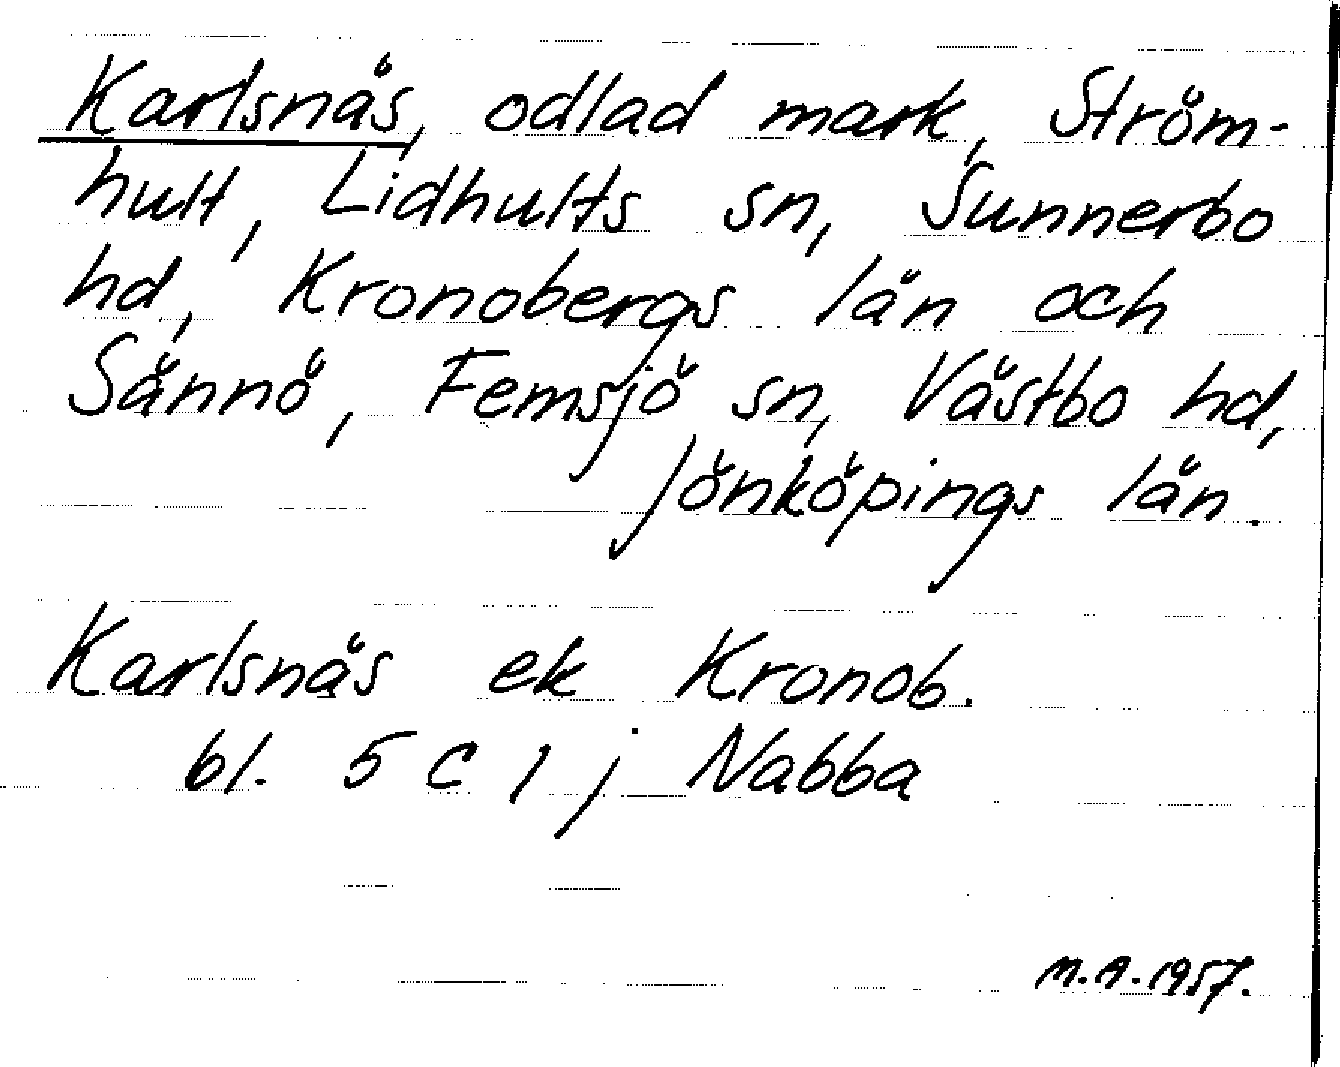 Karlsnäs, odlad mark, Ström-
hult, Lidhults sn, Sunnerbo
hd, Kronobergs län och
Sännö, Femsjö sn, Västbo hd,
Jönköpings län.
Karlsnäs ek Kronob.
bl. 5 C 1 j Nabba
M.A. 1957.